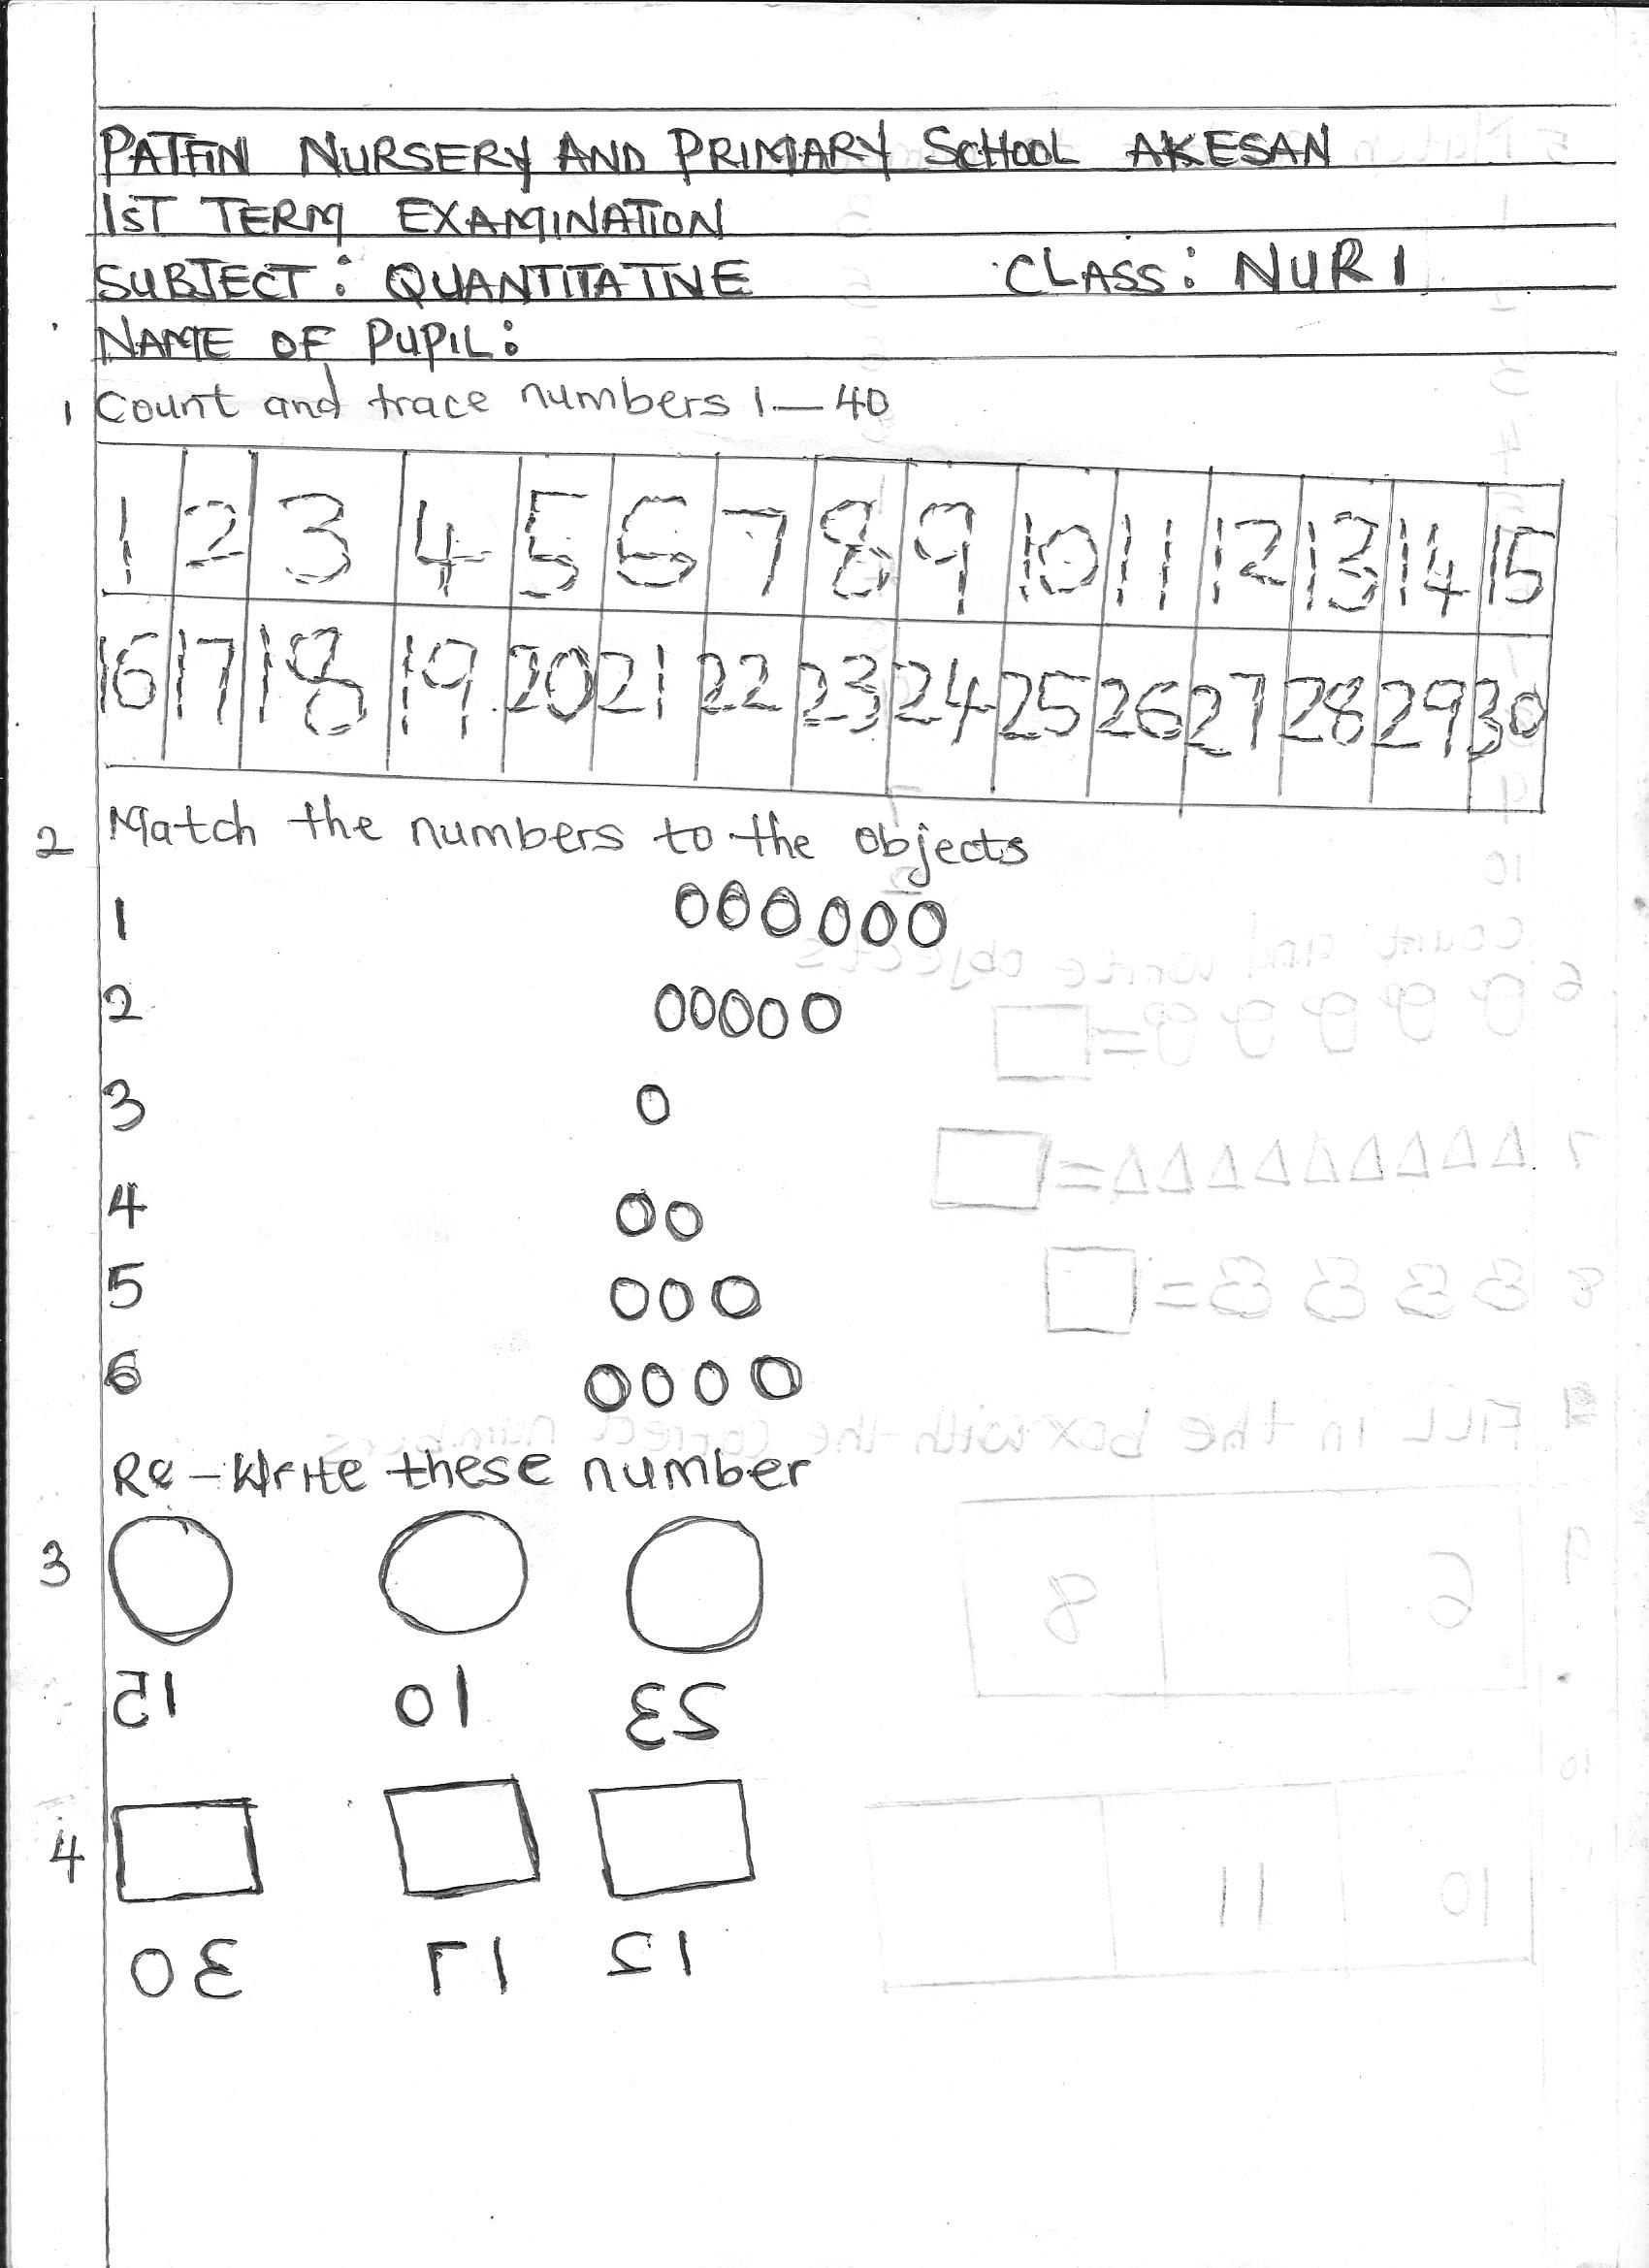 PATFIN NURSERY AND PRIMARY SCHOOL AKESAN
1ST TERM EXAMINATION
SUBJECT: QUANTITATIVE CLASS: NUR 1
NAME OF PUPIL:
1 Count and trace numbers 1-40
1 2 3 4 5 6 7 8 9 10 11 12 13 14 15
16 17 18 19 20 21 22 23 24 25 26 27 28 29 30
2 Match the numbers to the objects
1
2
3
4
5
6
Re-Write these number
3
15 10 23
4
30 17 12